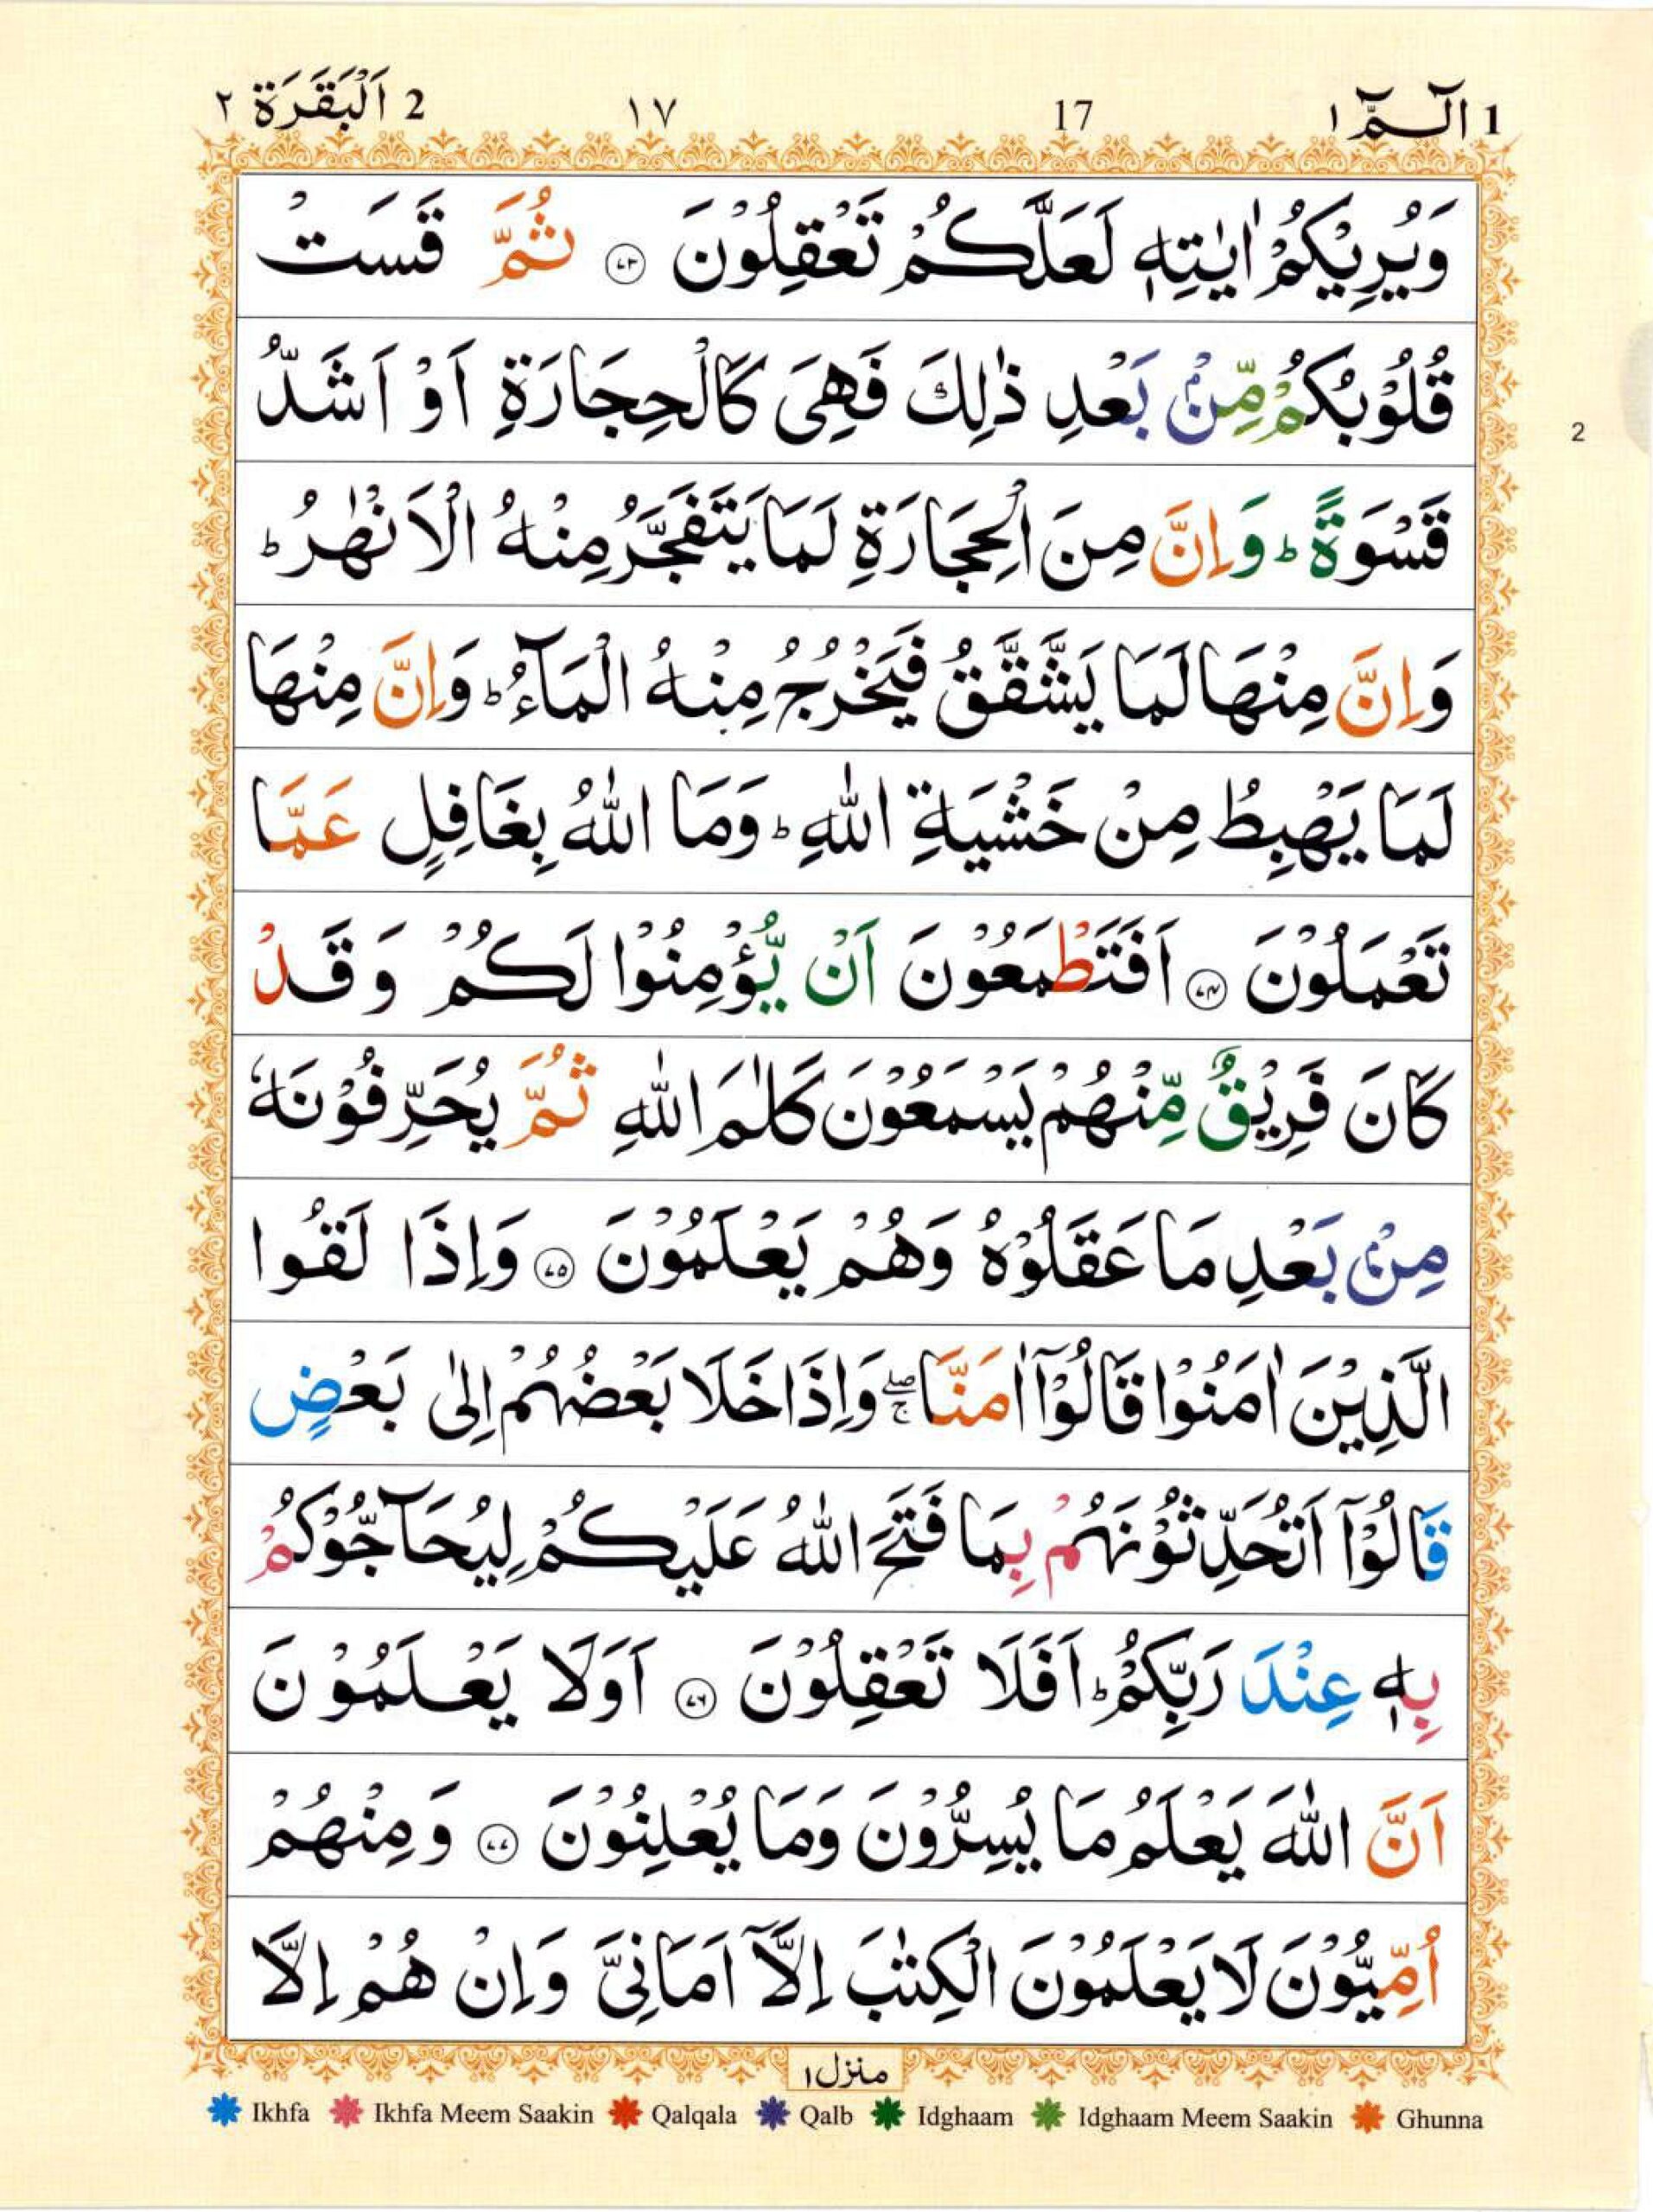 1 الٓـمّٓ ١ 17 ١٧ 2 اَلْبَقَرَة ٢
وَيُرِيْكُمْ اٰيٰتِهٖ لَعَلَّكُمْ تَعْقِلُوْنَ ﴿۷۳﴾ ثُمَّ قَسَتْ
قُلُوْبُكُمْ مِّنْۢ بَعْدِ ذٰلِكَ فَهِىَ كَالْحِجَارَةِ اَوْ اَشَدُّ
2
قَسْوَةً ؕ وَاِنَّ مِنَ الْحِجَارَةِ لَمَا يَتَفَجَّرُ مِنْهُ الْاَنْهٰرُ ؕ
وَاِنَّ مِنْهَا لَمَا يَشَّقَّقُ فَيَخْرُجُ مِنْهُ الْمَآءُ ؕ وَاِنَّ مِنْهَا
لَمَا يَهْبِطُ مِنْ خَشْيَةِ اللّٰهِ ؕ وَمَا اللّٰهُ بِغَافِلٍ عَمَّا
تَعْمَلُوْنَ ﴿۷۴﴾ اَفَتَطْمَعُوْنَ اَنْ يُّؤْمِنُوْا لَكُمْ وَقَدْ
كَانَ فَرِيْقٌ مِّنْهُمْ يَسْمَعُوْنَ كَلٰمَ اللّٰهِ ثُمَّ يُحَرِّفُوْنَهٗ
مِنْۢ بَعْدِ مَا عَقَلُوْهُ وَهُمْ يَعْلَمُوْنَ ﴿۷۵﴾ وَاِذَا لَقُوا
الَّذِيْنَ اٰمَنُوْا قَالُوْٓا اٰمَنَّا ۖۚ وَاِذَا خَلَا بَعْضُهُمْ اِلٰى بَعْضٍ
قَالُوْٓا اَتُحَدِّثُوْنَهُمْ بِمَا فَتَحَ اللّٰهُ عَلَيْكُمْ لِيُحَآجُّوْكُمْ
بِهٖ عِنْدَ رَبِّكُمْ ؕ اَفَلَا تَعْقِلُوْنَ ﴿۷۶﴾ اَوَلَا يَعْلَمُوْنَ
اَنَّ اللّٰهَ يَعْلَمُ مَا يُسِرُّوْنَ وَمَا يُعْلِنُوْنَ ﴿۷۷﴾ وَمِنْهُمْ
اُمِّيُّوْنَ لَا يَعْلَمُوْنَ الْكِتٰبَ اِلَّآ اَمَانِىَّ وَاِنْ هُمْ اِلَّا
منزل ١
Ikhfa Ikhfa Meem Saakin Qalqala Qalb Idghaam Idghaam Meem Saakin Ghunna